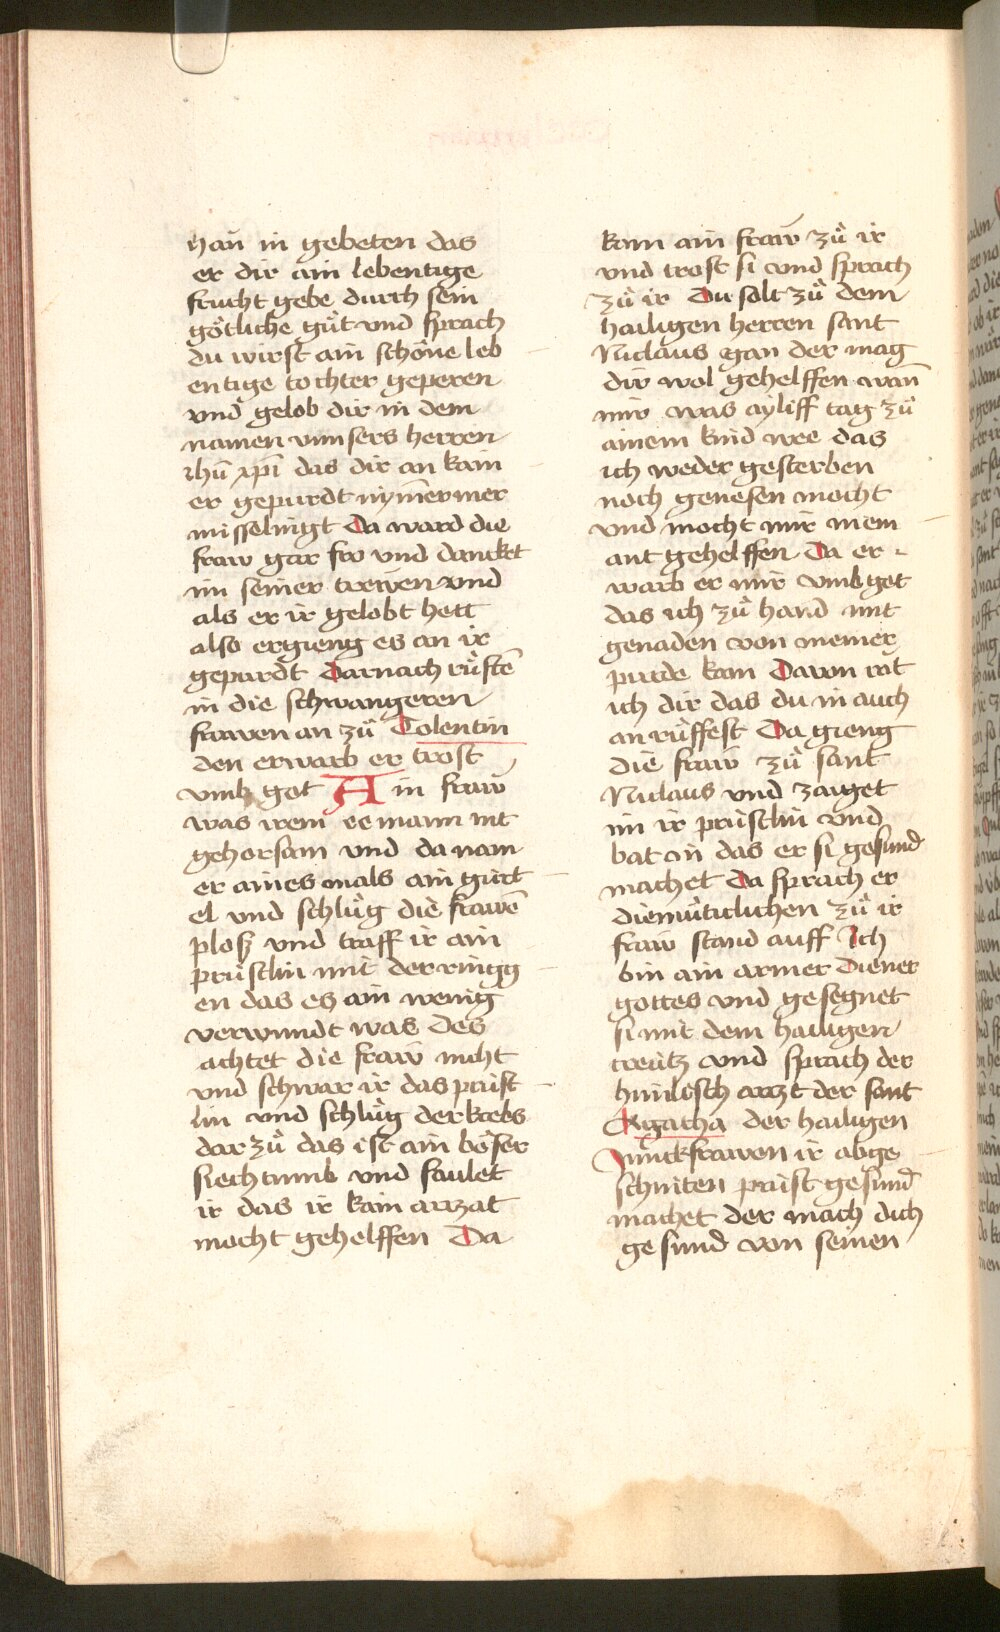 han in gebeten das
er dir ain lebentige
frucht gebe durch sein
götliche gůt vnd sprach
du wirst ain schöne leb
entige tochter geperen
vnd gelob dir in dem
namen vnnsers herren
ihū xpī das dir an kain
er gepurdt nym̄ermer
misselingt Da ward die
fraw gar fro vnd dancket
im seiner trewen vnd
als er ir gelobt hett
also ergieng es an ir
gepurdt Darnach růftē
in die schwangeren
frawen an zů Tolentin
den erwarb er trost
vmb got Ain fraw
was irem eemann nit
gehorsam vnd da nam
er aines mals ain gürt
el vnd schlůg die frawē
ploß vnd traff ir ain
prüstlin mit der ringg
en das es ain wenig
verwundt was Des
achtet die fraw nicht
vnd schwar ir das prüst
lin vnd schlůg der krebs
dar zů das ist ain böser
siechtumb vnd faulet
ir das ir kain arzat
mocht gehelffen Da
kam ain fraw zů ir
vnd trost si vnd sprach
zů ir Du solt zů dem
hailigen herren sant
Niclaus gan der mag
dir wol gehelffen wan̄
mir was ayliff tag zů
ainem kind wee das
ich weder gesterben
noch genesen mocht
vnd mocht mir niem
ant gehelffen Da er
warb er mir vmb got
das ich zů hand mit
genaden von meiner
purde kam Davon rat
ich dir das du in auch
an růffest Da gieng
die fraw zů sant
Niclaus vnd zaiget
im ir prüstlin vnd
bat in das er si gesund
machet Da sprach er
diemůticlichen zů ir
fraw stand auff Ich
bin ain armer diener
gottes vnd gesegnet
si mit dem hailigen
creütz vnd sprach der
himlisch arzt der sant
Agatha der hailigen
Junckfrawen ir abge
schniten prüst gesund
machet der mach dich
gesund von seinen